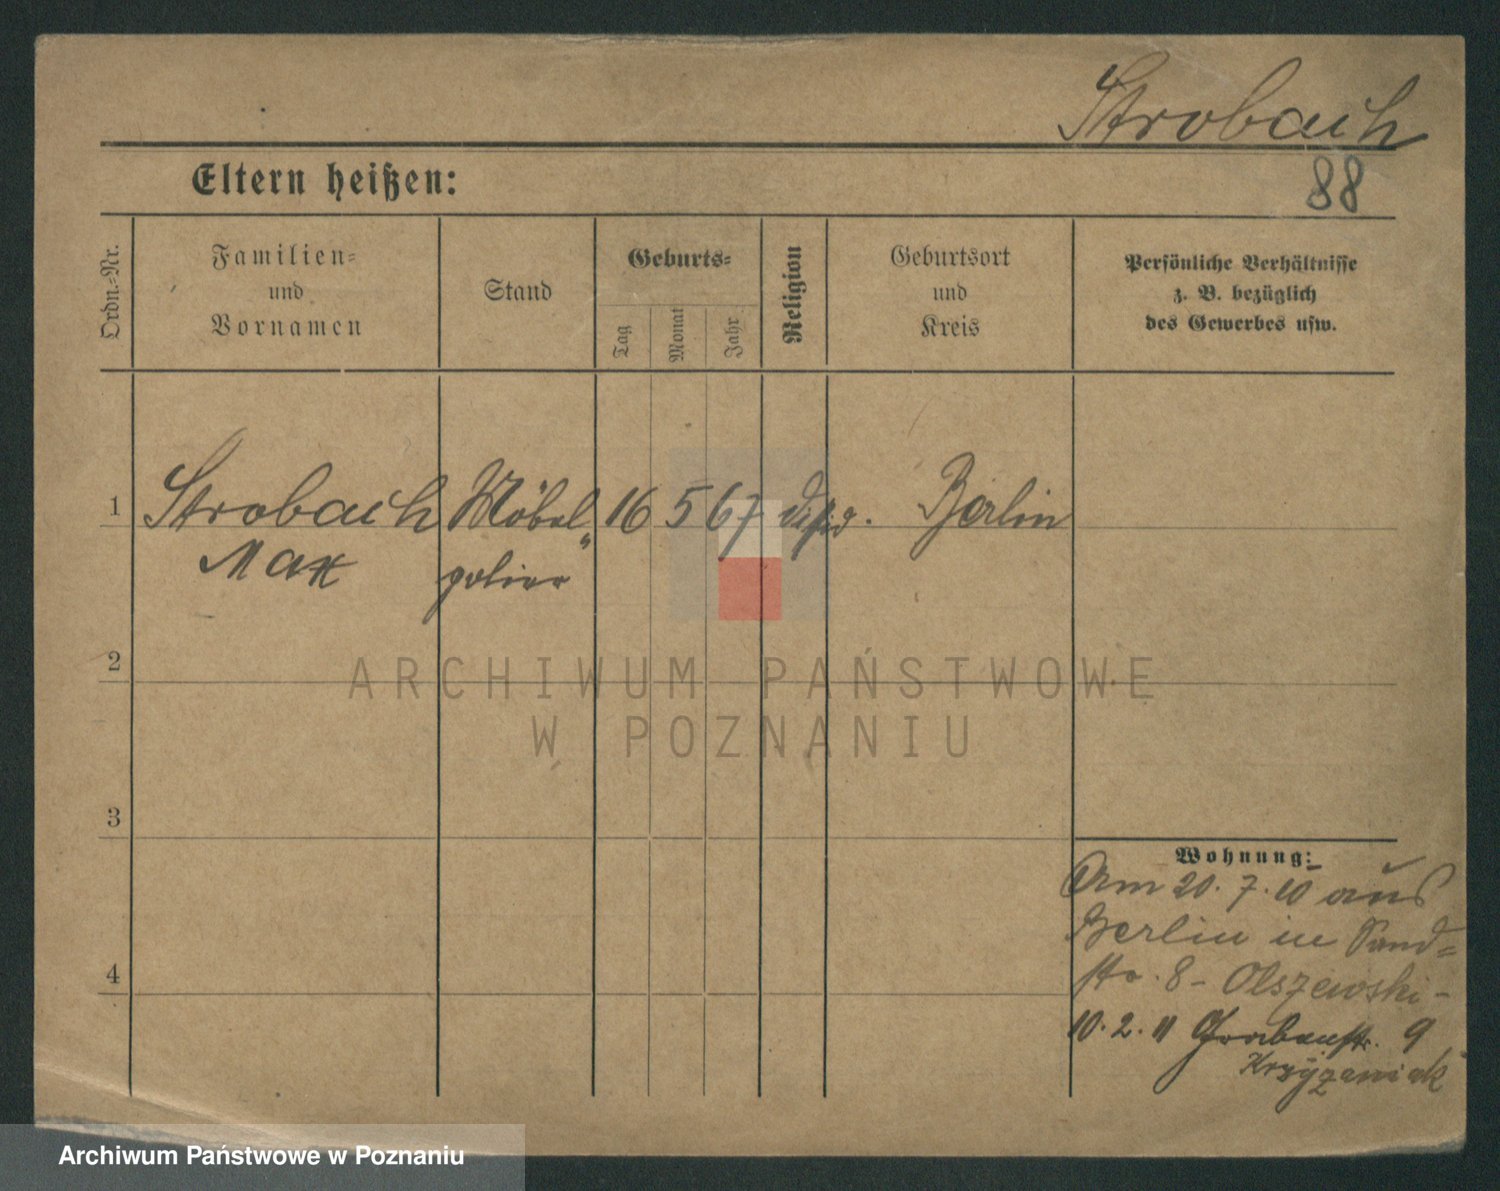 Strobach
88
Eltern heißen:
Ordn.-Nr.
Familien-
und
Vornamen
Stand
Geburts-
Tag
Monat
Jahr
Religion
Geburtsort
und
Kreis
Persönliche Verhältnisse
z. B. bezüglich
des Gewerbes usw.
1 Strobach Möbel 16 5 67 Berlin
Max polier
2
3
4
Wohnung:
Am 20. 7. 10 aus
Berlin in Sand-
str. 8 - Olszewski -
10. 2. 11 Grabenstr. 9
Krzyżaniak
ARCHIWUM PAŃSTWOWE
W POZNANIU
Archiwum Państwowe w Poznaniu